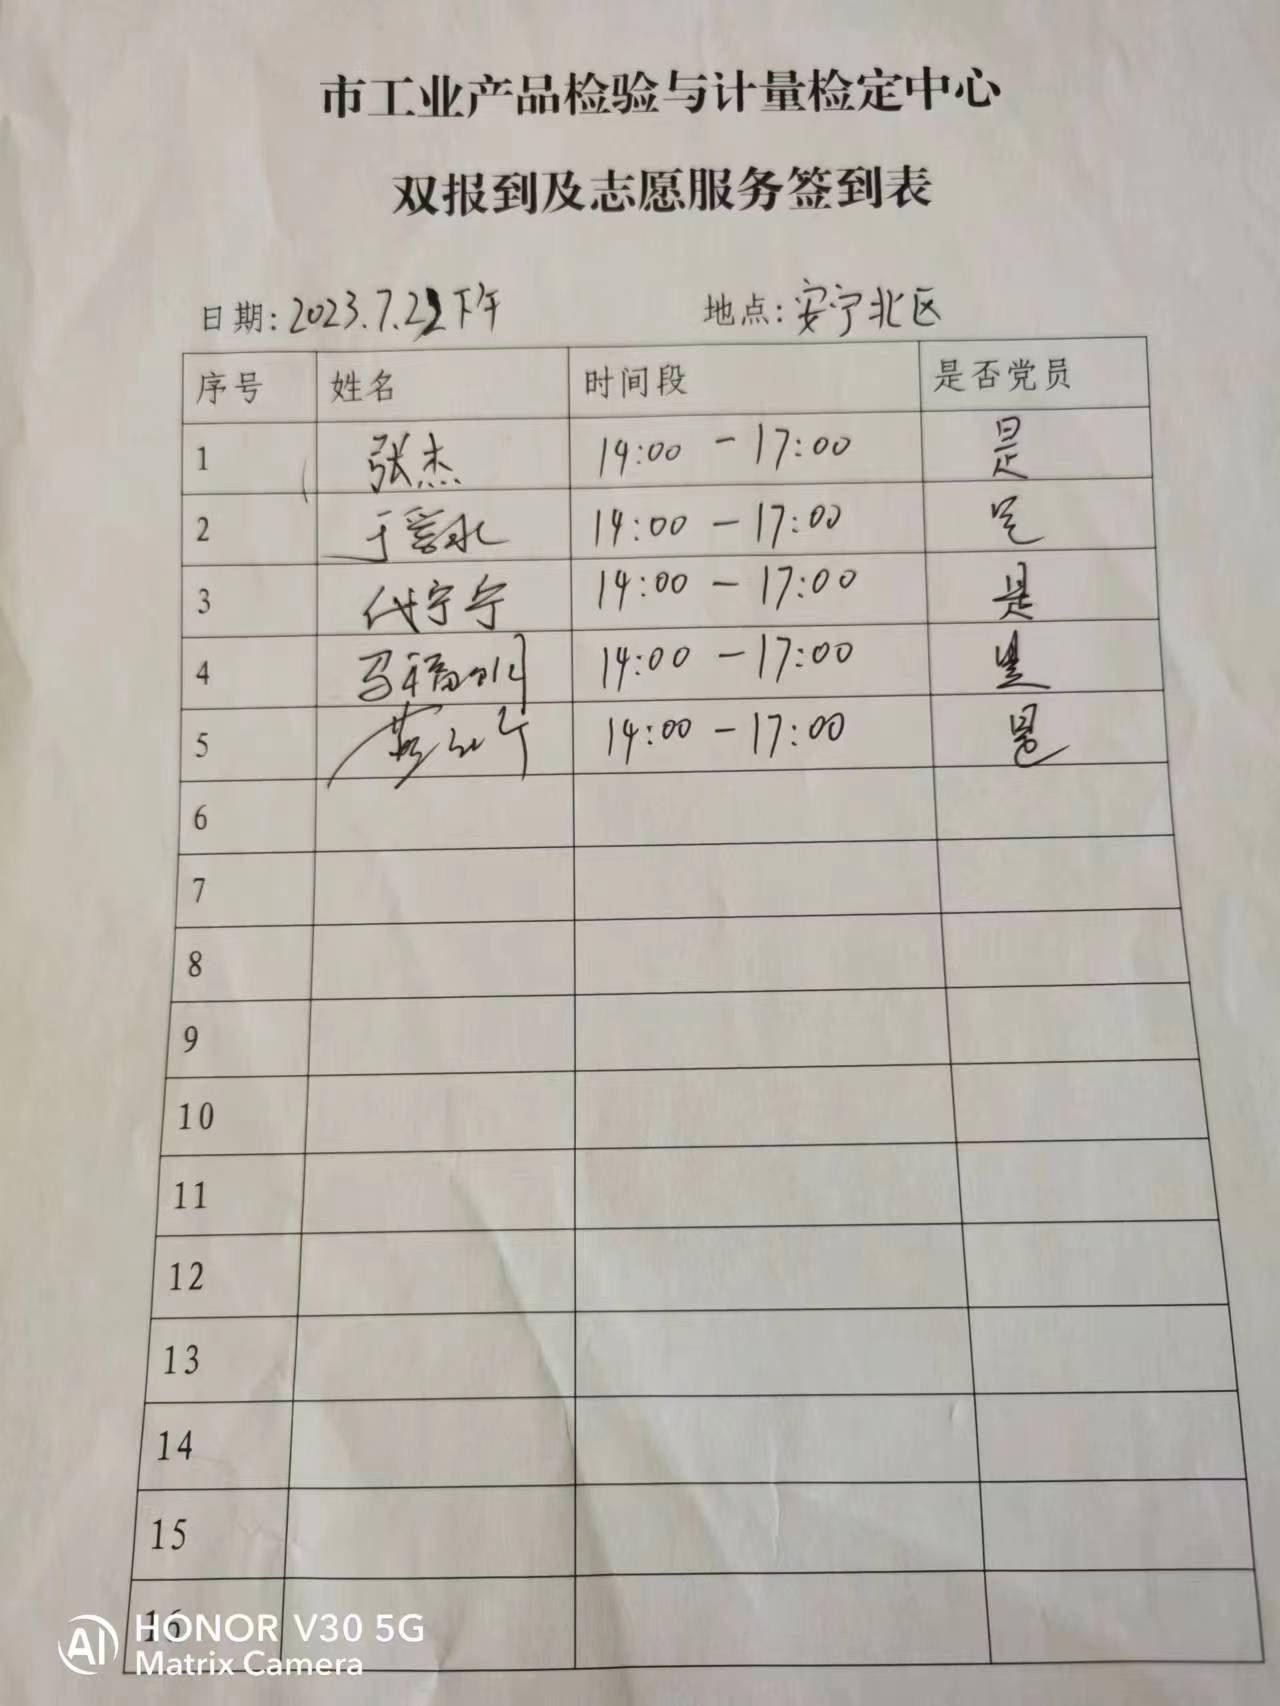 市工业产品检验与计量检定中心
双报到及志愿服务签到表
日期: 2023.7.22下午 地点: 安宁北区
序号 姓名 时间段 是否党员
1 张杰 14:00 - 17:00 是
2 14:00 - 17:00 是
3 代宁宁 14:00 - 17:00 是
4 14:00 - 17:00 是
5 14:00 - 17:00 是
6
7
8
9
10
11
12
13
14
15
16
AI HONOR V30 5G
Matrix Camera